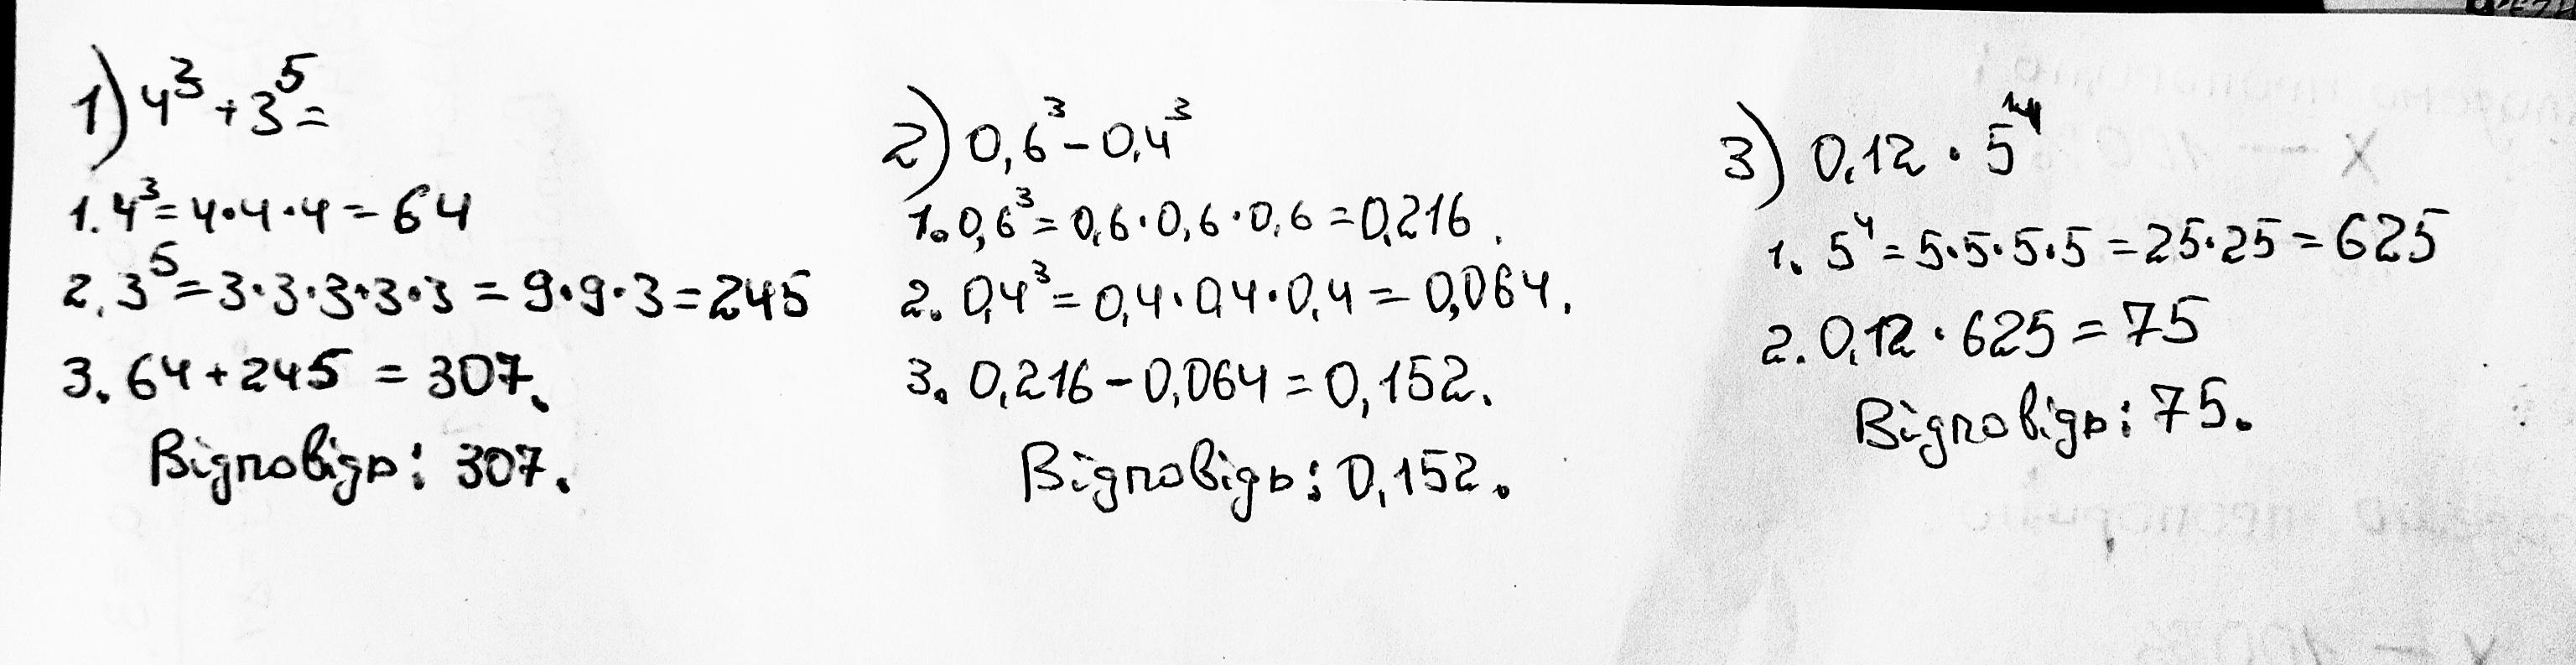 1) 4³ + 3⁵ =
1. 4³ = 4·4·4 = 64
2. 3⁵ = 3·3·3·3·3 = 9·9·3 = 245
3. 64 + 245 = 307.
Відповідь: 307.
2) 0,6³ - 0,4³
1. 0,6³ = 0,6·0,6·0,6 = 0,216.
2. 0,4³ = 0,4·0,4·0,4 = 0,064.
3. 0,216 - 0,064 = 0,152.
Відповідь: 0,152.
3) 0,12 · 5⁴
1. 5⁴ = 5·5·5·5 = 25·25 = 625
2. 0,12 · 625 = 75
Відповідь: 75.